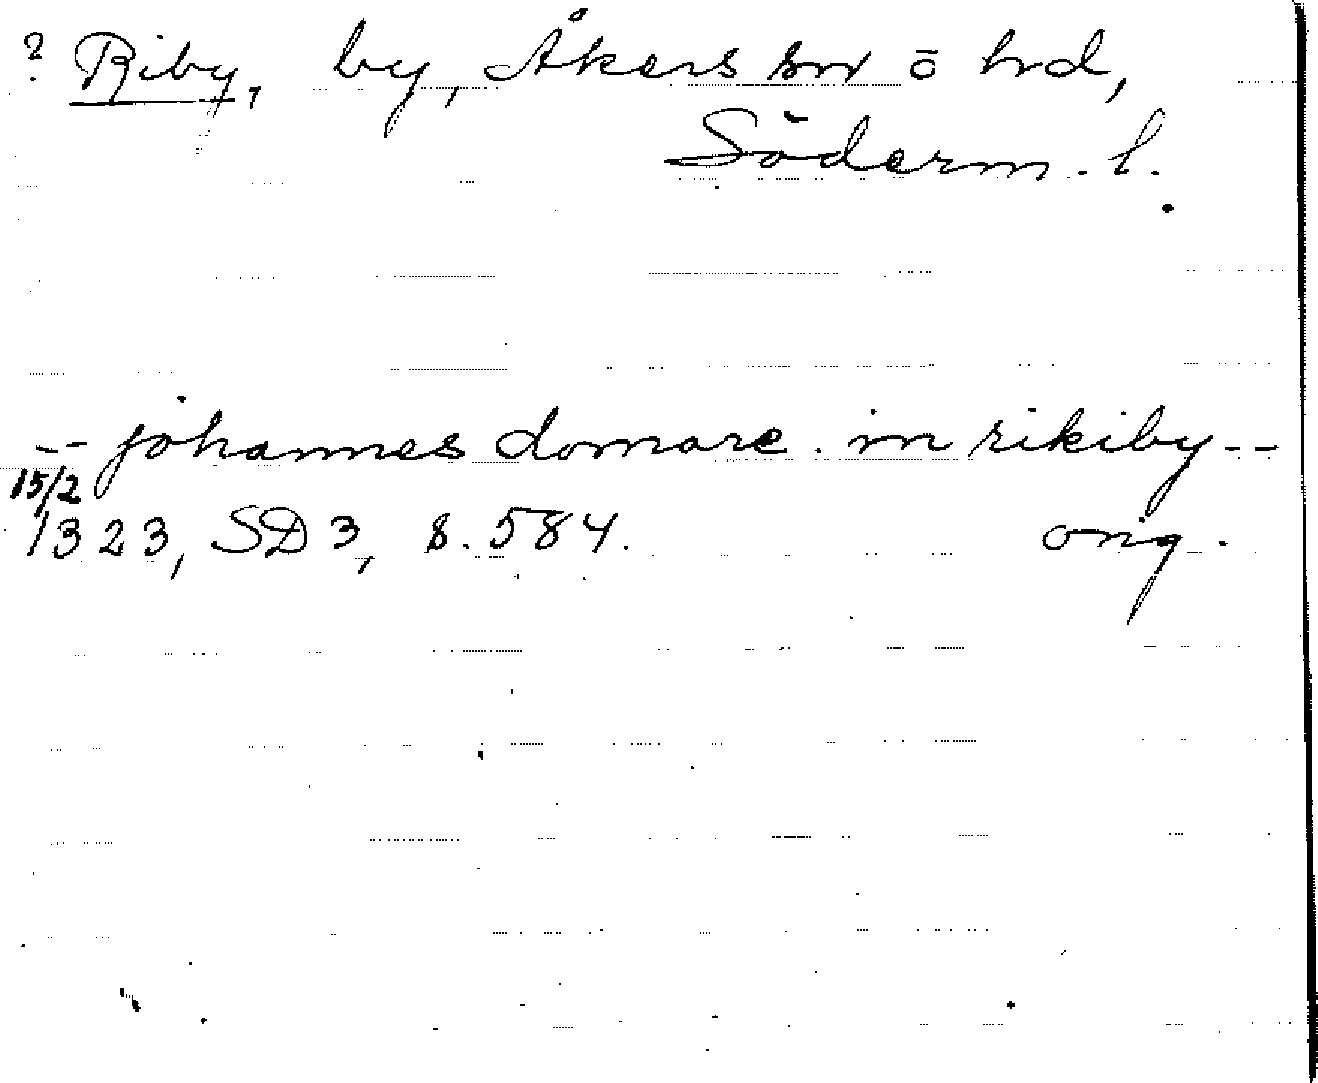 ? Riby, by, Åkers sn o hd,
Söderm. l.
-- johannes domare. in rikiby --
15/2
1323, SD 3, s. 584. orig.